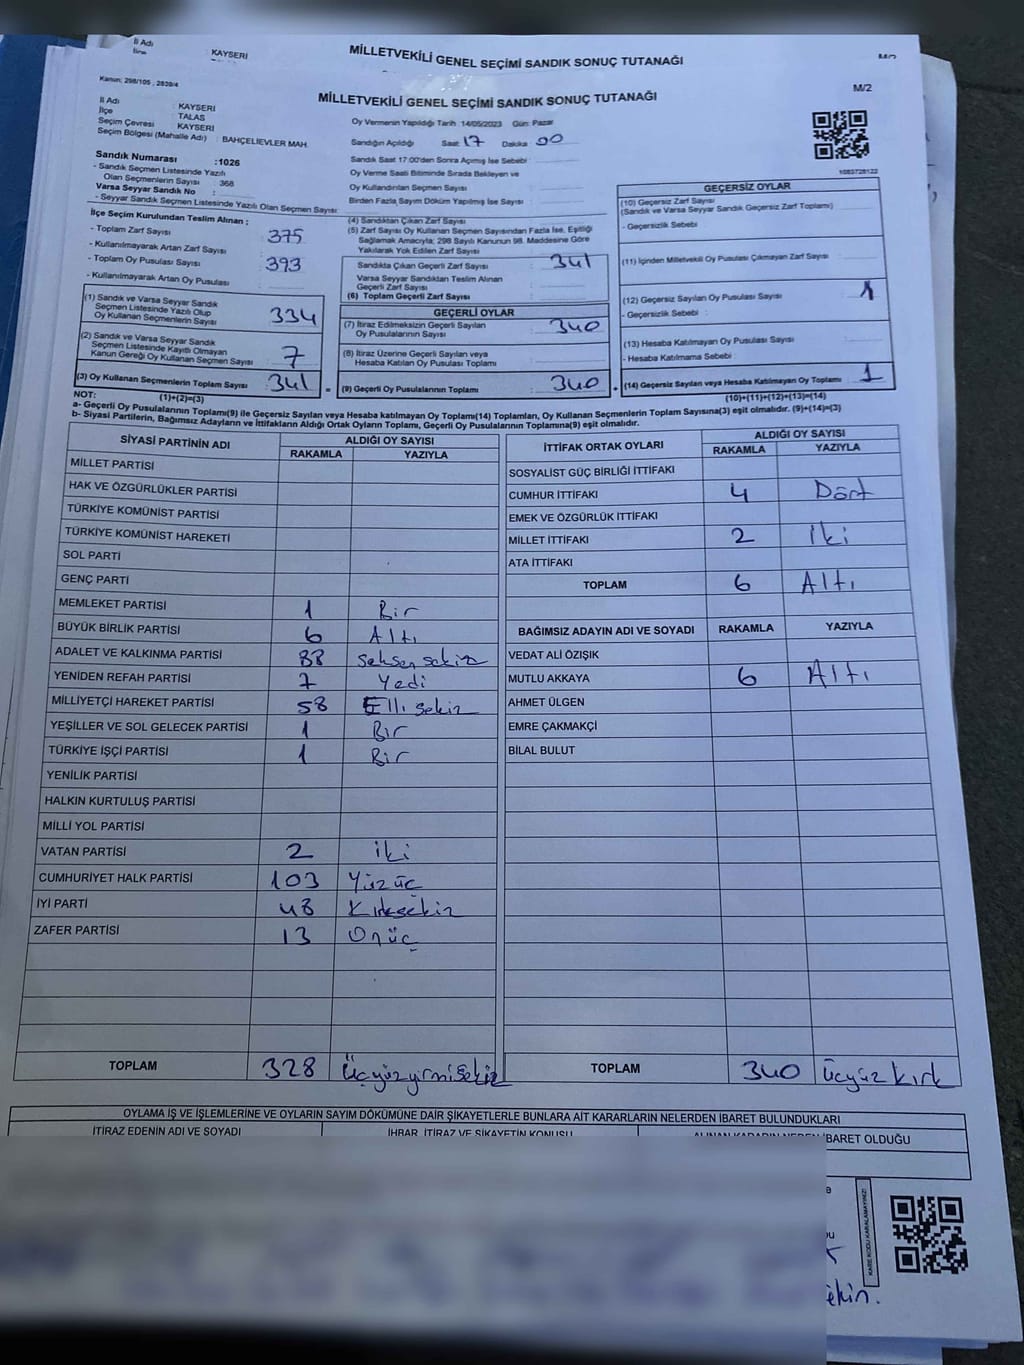 İl Adı : KAYSERİ
MİLLETVEKİLİ GENEL SEÇİMİ SANDIK SONUÇ TUTANAĞI
Kanun: 298/105 , 2839/4
MİLLETVEKİLİ GENEL SEÇİMİ SANDIK SONUÇ TUTANAĞI
M/2
İl Adı : KAYSERİ
İlçe : TALAS
Seçim Çevresi : KAYSERİ
Seçim Bölgesi (Mahalle Adı) : BAHÇELİEVLER MAH.
Oy Vermenin Yapıldığı Tarih :14/05/2023 Gün: Pazar
Sandığın Açıldığı Saat :17 Dakika : 00
Sandık Saat 17:00'den Sonra Açımış İse Sebebi :
Oy Verme Saati Bitiminde Sırada Bekleyen ve
Oy Kullandırılan Seçmen Sayısı :
Birden Fazla Sayım Döküm Yapılmış İse Sayısı :
Sandık Numarası :1026
- Sandık Seçmen Listesinde Yazılı
Olan Seçmenlerin Sayısı : 368
Varsa Seyyar Sandık No :
- Seyyar Sandık Seçmen Listesinde Yazılı Olan Seçmen Sayısı :
İlçe Seçim Kurulundan Teslim Alınan ;
- Toplam Zarf Sayısı : 375
- Kullanılmayarak Artan Zarf Sayısı :
- Toplam Oy Pusulası Sayısı : 393
- Kullanılmayarak Artan Oy Pusulası :
(1) Sandık ve Varsa Seyyar Sandık
Seçmen Listesinde Yazılı Olup
Oy Kullanan Seçmenlerin Sayısı : 334
(2) Sandık ve Varsa Seyyar Sandık
Seçmen Listesinde Kayıtlı Olmayan
Kanun Gereği Oy Kullanan Seçmen Sayısı : 7
(3) Oy Kullanan Seçmenlerin Toplam Sayısı : 341
(1)+(2)=(3)
(4) Sandıktan Çıkan Zarf Sayısı
(5) Zarf Sayısı Oy Kullanan Seçmen Sayısından Fazla İse, Eşitliği
Sağlamak Amacıyla; 298 Sayılı Kanunun 98. Maddesine Göre
Yakılarak Yok Edilen Zarf Sayısı :
Sandıkta Çıkan Geçerli Zarf Sayısı : 341
Varsa Seyyar Sandıktan Teslim Alınan
Geçerli Zarf Sayısı :
(6) Toplam Geçerli Zarf Sayısı :
GEÇERLİ OYLAR
(7) İtiraz Edilmeksizin Geçerli Sayılan
Oy Pusulalarının Sayısı : 340
(8) İtiraz Üzerine Geçerli Sayılan veya
Hesaba Katılan Oy Pusulası Toplamı :
= (9) Geçerli Oy Pusulalarının Toplamı : 340
GEÇERSİZ OYLAR
(10) Geçersiz Zarf Sayısı
(Sandık ve Varsa Seyyar Sandık Geçersiz Zarf Toplamı)
- Geçersizlik Sebebi :
(11) İçinden Milletvekili Oy Pusulası Çıkmayan Zarf Sayısı :
(12) Geçersiz Sayılan Oy Pusulası Sayısı : 1
- Geçersizlik Sebebi :
(13) Hesaba Katılmayan Oy Pusulası Sayısı :
- Hesaba Katılmama Sebebi :
+ (14) Geçersiz Sayılan veya Hesaba Katılmayan Oy Toplamı : 1
(10)+(11)+(12)+(13)=(14)
NOT:
a- Geçerli Oy Pusulalarının Toplamı(9) ile Geçersiz Sayılan veya Hesaba katılmayan Oy Toplamı(14) Toplamları, Oy Kullanan Seçmenlerin Toplam Sayısına(3) eşit olmalıdır. (9)+(14)=(3)
b- Siyasi Partilerin, Bağımsız Adayların ve İttifakların Aldığı Ortak Oyların Toplamı, Geçerli Oy Pusulalarının Toplamına(9) eşit olmalıdır.
SİYASİ PARTİNİN ADI ALDIĞI OY SAYISI
RAKAMLA YAZIYLA
MİLLET PARTİSİ
HAK VE ÖZGÜRLÜKLER PARTİSİ
TÜRKİYE KOMÜNİST PARTİSİ
TÜRKİYE KOMÜNİST HAREKETİ
SOL PARTİ
GENÇ PARTİ
MEMLEKET PARTİSİ 1 Bir
BÜYÜK BİRLİK PARTİSİ 6 Altı
ADALET VE KALKINMA PARTİSİ 88 Seksen sekiz
YENİDEN REFAH PARTİSİ 7 Yedi
MİLLİYETÇİ HAREKET PARTİSİ 58 Elli sekiz
YEŞİLLER VE SOL GELECEK PARTİSİ 1 Bir
TÜRKİYE İŞÇİ PARTİSİ 1 Bir
YENİLİK PARTİSİ
HALKIN KURTULUŞ PARTİSİ
MİLLİ YOL PARTİSİ
VATAN PARTİSİ 2 iki
CUMHURİYET HALK PARTİSİ 103 Yüzüç
İYİ PARTİ 48 Kırksekiz
ZAFER PARTİSİ 13 Onüç
TOPLAM 328 Üçyüzyirmisekiz
İTTİFAK ORTAK OYLARI ALDIĞI OY SAYISI
RAKAMLA YAZIYLA
SOSYALİST GÜÇ BİRLİĞİ İTTİFAKI
CUMHUR İTTİFAKI 4 Dört
EMEK VE ÖZGÜRLÜK İTTİFAKI
MİLLET İTTİFAKI 2 İki
ATA İTTİFAKI
TOPLAM 6 Altı
BAĞIMSIZ ADAYIN ADI VE SOYADI RAKAMLA YAZIYLA
VEDAT ALİ ÖZIŞIK
MUTLU AKKAYA 6 Altı
AHMET ÜLGEN
EMRE ÇAKMAKÇİ
BİLAL BULUT
TOPLAM 340 Üçyüz kırk
OYLAMA İŞ VE İŞLEMLERİNE VE OYLARIN SAYIM DÖKÜMÜNE DAİR ŞİKAYETLERLE BUNLARA AİT KARARLARIN NELERDEN İBARET BULUNDUKLARI
İTİRAZ EDENİN ADI VE SOYADI İHBAR, İTİRAZ VE ŞİKAYETİN KONUSU ALINAN KARARIN NEDEN İBARET OLDUĞU
KARE KODU KARALAMAYINIZ!